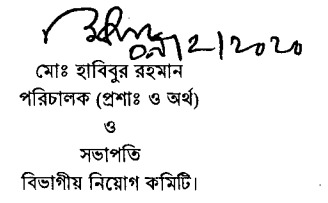 ০৯/১২/২০২০
মোঃ হাবিবুর রহমান
পরিচালক (প্রশাঃ ও অর্থ)
ও
সভাপতি
বিভাগীয় নিয়োগ কমিটি।